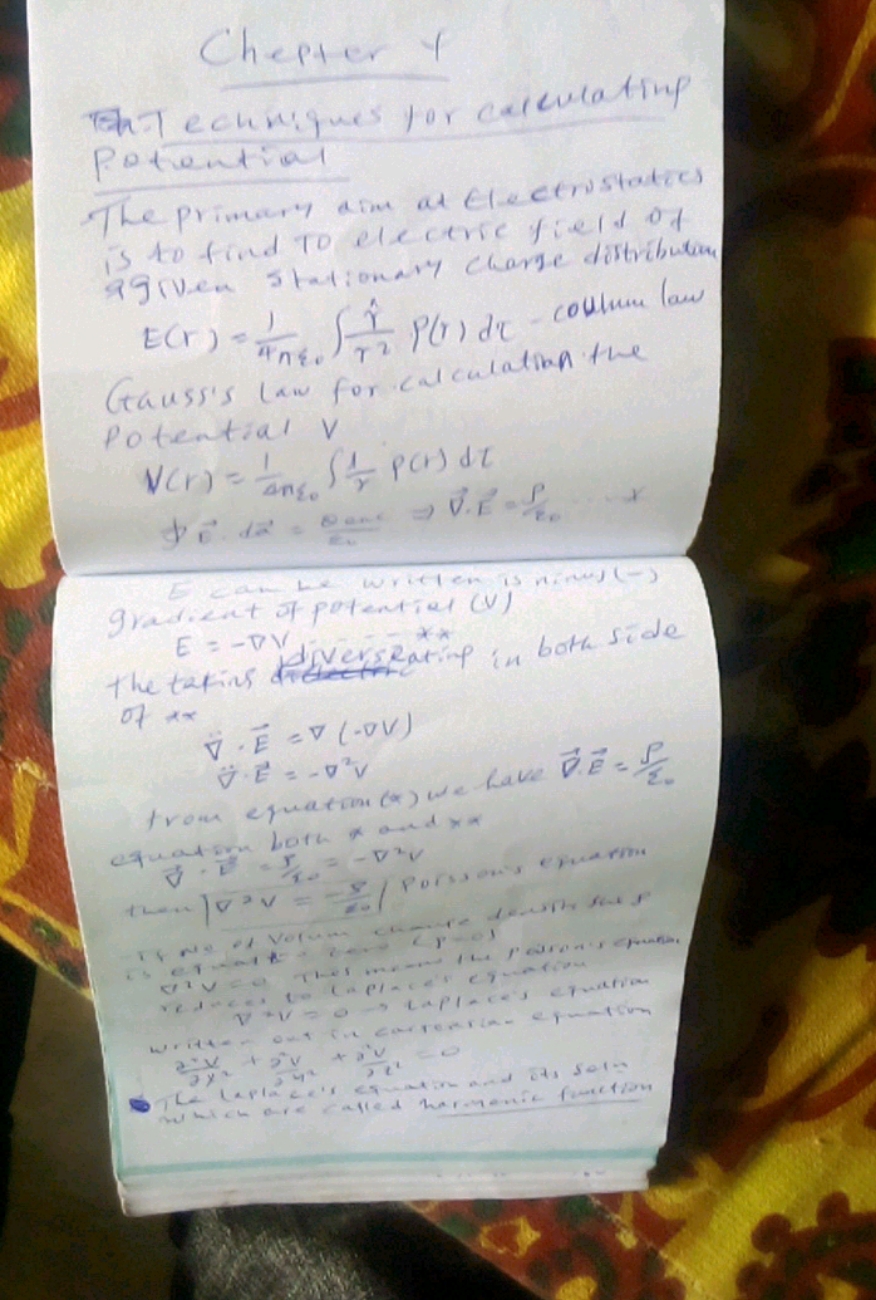 Chepter 4
Techniques for calculating
Potential
The primary aim at Electrostatics
is to find TO electric field of
a given stationary charge distribution
E(r) = 1/4πε₀ ∫ r̂/r² ρ(r) dτ - coulum law
Gauss's law for calculation the
Potential V
V(r) = 1/4πε₀ ∫ 1/r ρ(r) dτ
∮ E⃗ . da⃗ = Qenc/ε₀ ⇒ ∇⃗.E⃗ = ρ/ε₀ .... *
E can be written is minus (-)
gradient of potential (V)
E = -∇V - - - - **
the taking diversgating in both side
of **
∇⃗ . E⃗ = ∇ (-∇V)
∇⃗ . E⃗ = -∇²V
from equation (*) we have ∇⃗.E⃗ = ρ/ε₀
equation both * and **
∇⃗ . E⃗ = ρ/ε₀ = -∇²V
then ∇²V = -ρ/ε₀ Poisson's equation
If no of Volum charge density
is equal to zero (ρ=0)
∇²V=0 This means the Poisson's equation
reduces to Laplace's equation
∇²V = 0 → Laplace's equation
written out in cartensian equation
∂²V/∂x² + ∂²V/∂y² + ∂²V/∂z² = 0
The Laplace's equation and its soln
which are called harmonic function